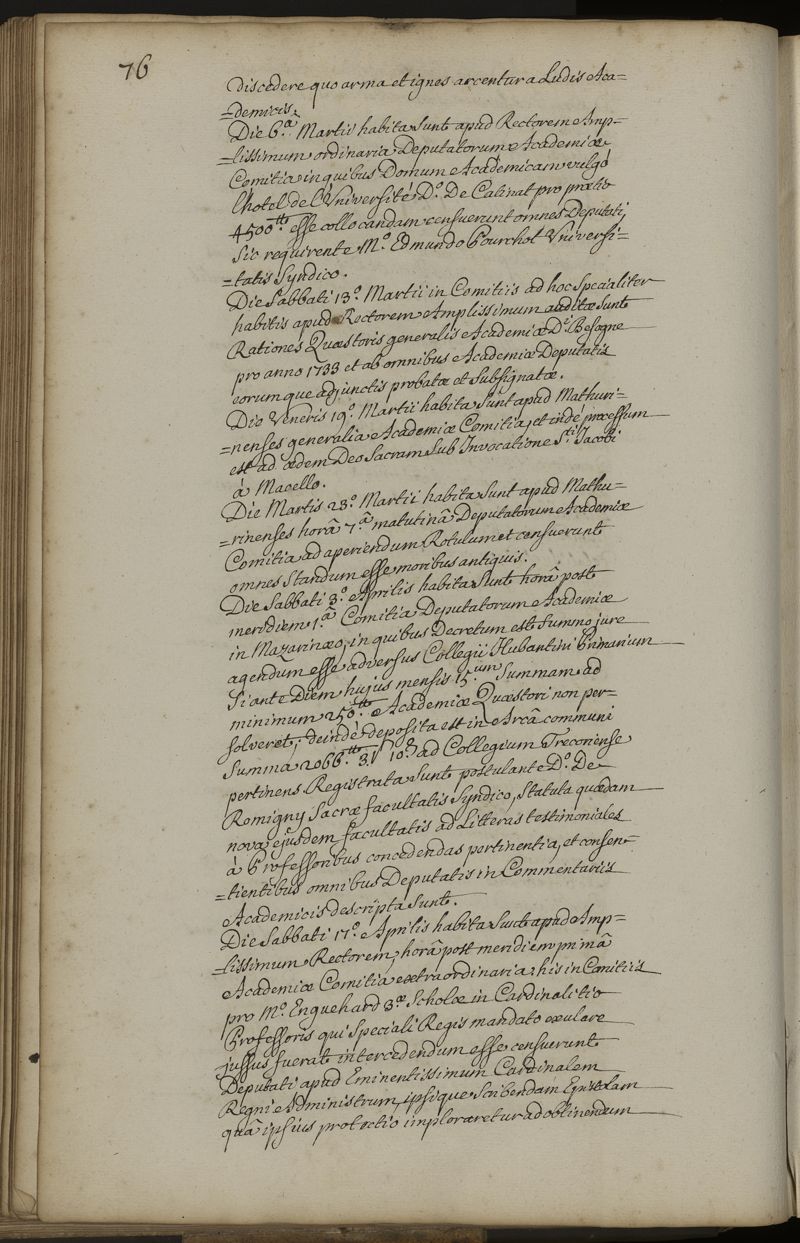 76
discedere quo arma et ignes arcentur a Ludis Aca=
=demicis.
Die 6.ª Martii habita Sunt apud Rectorem Amp=
=lissimum ordinaria Deputatorum Academiæ
Comitia in quibus Domum Academicam vulgò
l'hotel de l'Université D.º De Catinat pro prætio
4500.tt esse collocandam censuerunt omnes Deputati,
Sic requirente M.º Edmundo Pourchot Universi=
=tatis Syndico.
Die Sabbati 13.º Martii in Comitiis ad hoc Specialiter
habitis apud Rectorem Amplissimum auditæ Sunt
Rationes Quæstoris generalis Academiæ D.i Besogne
pro anno 1733 et ab omnibus Academiæ Deputatis
eorumque adjunctis probatæ et Subsignatæ.
Die Veneris 19.º Martii habita Sunt apud Mathuri=
=nenses generalia Academiæ Comitia, et indè processum
est ad ædem Deo Sacram Sub Invocatione S.ti Jacobi
à Macello.
Die Martis 23.º Martii habita Sunt apud Mathu=
=rinenses horâ 7.â matutinâ Deputatorum Academiæ
Comitia ad aperiendum Rotulum et censuerunt
omnes Standum esse moribus antiquis.
Die Sabbati 3.º Aprilis habita Sunt horâ post
meridiem 1.â Comitia Deputatorum Academiæ
in Mazarinæo, in quibus Decretum est Summo jure
agendum esse adversus Collegii Hubantini Primarium
Si ante Diem hujus mensis 15.um Summam ad
minimum 250.tt Academiæ Quæstori non per=
solveret; deindè deposita est in Arcâ communi
Summa 2066.tt 3.s 10.d ad Collegium Trecorense
pertinens. Registrata Sunt postulante D.º De
Romigny Sacræ facultatis Syndico, Statuta quædam
nova ejusdem facultatis ad Litteras testimoniales
à Professoribus concedendas pertinentia, et consen=
=tientibus omnibus Deputatis in Commentariis
Academicis descripta Sunt.
Die Sabbati 17.º Aprilis habita Sunt apud Amp=
=lissimum Rectorem, horâ post meridiem primâ
Academiæ Comitia extraordinaria: his in Comitiis
pro M.º Enguehard 3.æ Scholæ in Cardinalitio
Professoris qui Speciali Regis mandato exulare
jussus fuerat intercedendum esse censuerunt
Deputati apud Eminentissimum Cardinalem
Regni Administrum, ipsique Scribendam Epistolam
quâ ipsius protectio imploraretur ad obtinendum